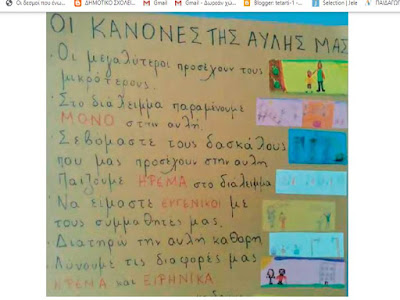 Οι δεσμοί που ένω... ΔΗΜΟΤΙΚΟ ΣΧΟΛΕΙ... Gmail Gmail - Δωρεάν χώ... Blogger: tetarti-1 - ... Selection | Jele ΠΑΙΔΑΓΩ
ΟΙ ΚΑΝΟΝΕΣ ΤΗΣ ΑΥΛΗΣ ΜΑΣ
· Οι μεγαλύτεροι προσέχουν τους
μικρότερους.
· Στο διάλειμμα παραμένουμε
ΜΟΝΟ στην αυλή.
· Σεβόμαστε τους δασκάλους
που μας προσέχουν στην αυλη
Παίζουμε ΗΡΕΜΑ στο διάλειμμα
· Να είμαστε ΕΥΓΕΝΙΚΟΙ με
τους συμμαθητές μας.
· Διατηρώ την αυλη καθαρη
Λύνουμε τις διαφορές μας
ΗΡΕΜΑ και ΕΙΡΗΝΙΚΑ